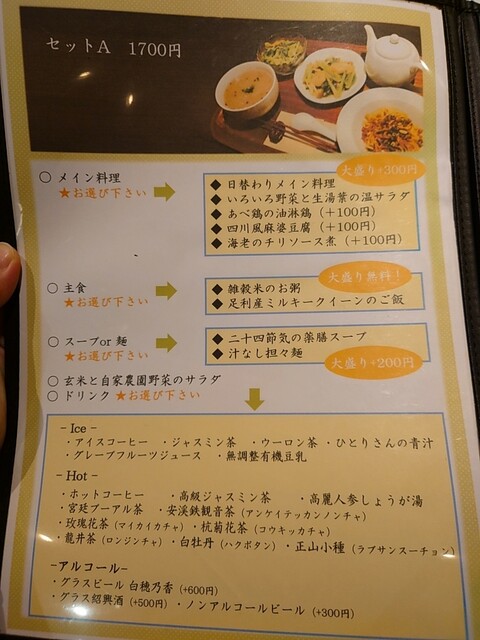 セットA 1700円
○ メイン料理
★お選び下さい
大盛り+300円
◆ 日替わりメイン料理
◆ いろいろ野菜と生湯葉の温サラダ
◆ あべ鶏の油淋鶏 (+100円)
◆ 四川風麻婆豆腐 (+100円)
◆ 海老のチリソース煮 (+100円)
○ 主食
★お選び下さい
大盛り無料!
◆ 雑穀米のお粥
◆ 足利産ミルキークイーンのご飯
○ スープor 麺
★お選び下さい
◆ 二十四節気の薬膳スープ
◆ 汁なし担々麺
大盛り+200円
○ 玄米と自家農園野菜のサラダ
○ ドリンク ★お選び下さい
- Ice -
・アイスコーヒー ・ジャスミン茶 ・ウーロン茶 ・ひとりさんの青汁
・グレープフルーツジュース ・無調整有機豆乳
- Hot -
・ホットコーヒー ・高級ジャスミン茶 ・高麗人参しょうが湯
・宮廷プーアル茶 ・安渓鉄観音茶 (アンケイテッカンノンチャ)
・玫瑰花茶 (マイカイカチャ) ・杭菊花茶 (コウキッカチャ)
・龍井茶 (ロンジンチャ) ・白牡丹 (ハクボタン) ・正山小種 (ラプサンスーチョン)
-アルコール-
・グラスビール 白穂乃香 (+600円)
・グラス紹興酒 (+500円) ・ノンアルコールビール (+300円)